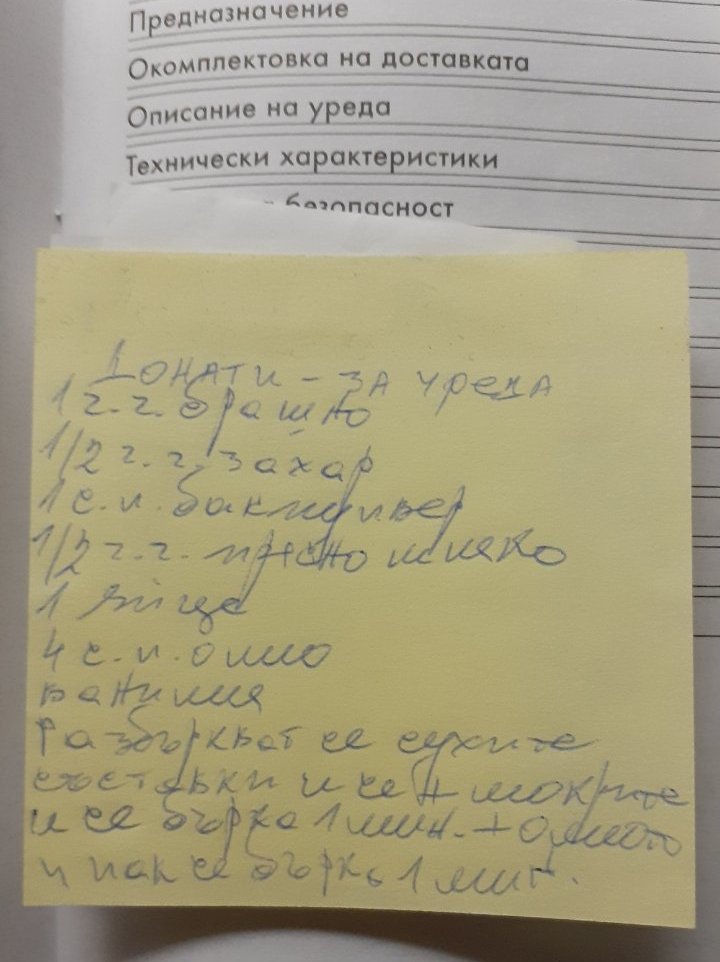 Предназначение
Окомплектовка на доставката
Описание на уреда
Технически характеристики
безопасност
Донати - за уреда
1 ч.ч. брашно
1/2 ч.ч. захар
1 с.л. бакпулвер
1/2 ч.ч. прясно мляко
1 яйце
4 с.л. олио
ванилия
Разбъркват се сухите
съставки и се + мокрите
и се бърка 1 мин. + олиото
и пак се бърка 1 мин.